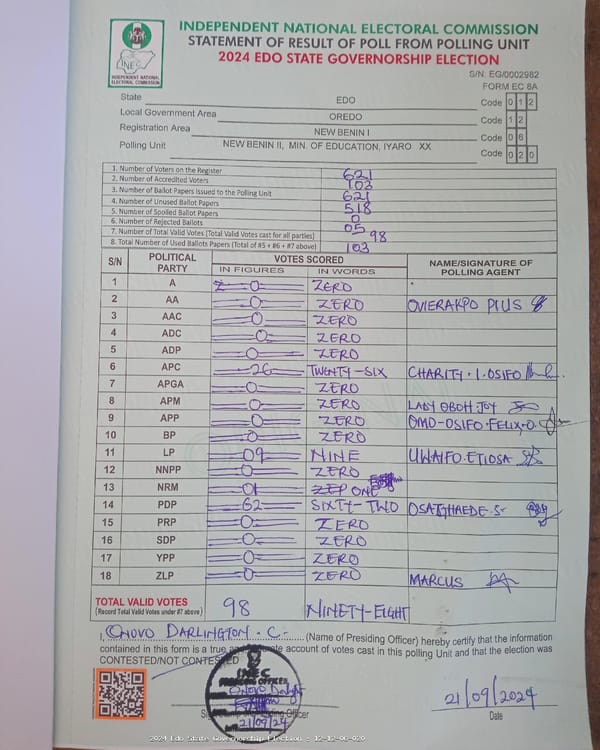 INDEPENDENT NATIONAL ELECTORAL COMMISSION
STATEMENT OF RESULT OF POLL FROM POLLING UNIT
2024 EDO STATE GOVERNORSHIP ELECTION
INEC
INDEPENDENT NATIONAL ELECTORAL COMMISSION
S/N: EG/0002982
FORM EC 8A
State EDO Code 0 1 2
Local Government Area OREDO Code 1 2
Registration Area NEW BENIN I Code 0 6
Polling Unit NEW BENIN II, MIN. OF EDUCATION, IYARO XX Code 0 2 0
1. Number of Voters on the Register 621
2. Number of Accredited Voters 103
3. Number of Ballot Papers Issued to the Polling Unit 621
4. Number of Unused Ballot Papers 518
5. Number of Spoiled Ballot Papers 0
6. Number of Rejected Ballots 05
7. Number of Total Valid Votes (Total Valid Votes cast for all parties) 98
8. Total Number of Used Ballots Papers (Total of #5 + #6 + #7 above) 103
S/N POLITICAL PARTY VOTES SCORED NAME/SIGNATURE OF POLLING AGENT
IN FIGURES IN WORDS
1 A 0 ZERO
2 AA 0 ZERO OVIERAKPO PIUS
3 AAC 0 ZERO
4 ADC 0 ZERO
5 ADP 0 ZERO
6 APC 26 TWENTY-SIX CHARITY. I. OSIFO
7 APGA 0 ZERO
8 APM 0 ZERO LADY OBOH JOY
9 APP 0 ZERO OMO-OSIFO.FELIX.O
10 BP 0 ZERO
11 LP 09 NINE UWAIFO.ETIOSA
12 NNPP 0 ZERO
13 NRM 01 ONE
14 PDP 62 SIXTY-TWO
15 PRP 0 ZERO
16 SDP 0 ZERO
17 YPP 0 ZERO
18 ZLP 0 ZERO MARCUS
TOTAL VALID VOTES 98 NINETY-EIGHT
(Record Total Valid Votes under #7 above)
I, ONOVO DARLINGTON. C. (Name of Presiding Officer) hereby certify that the information
contained in this form is a true account of votes cast in this polling Unit and that the election was
CONTESTED/NOT CONTESTED
INEC
PRESIDING OFFICER
21/09/24
21/09/2024
Date
2024 Edo State Governorship Election - 12-12-06-020